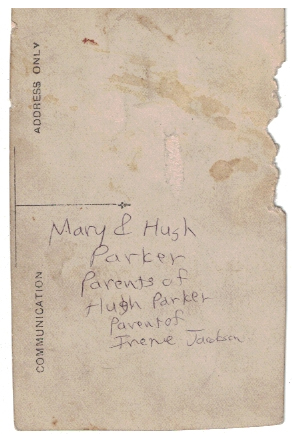 ADDRESS ONLY
COMMUNICATION
Mary & Hugh
Parker
Parents of
Hugh Parker
Parent of
Irene Jacobson